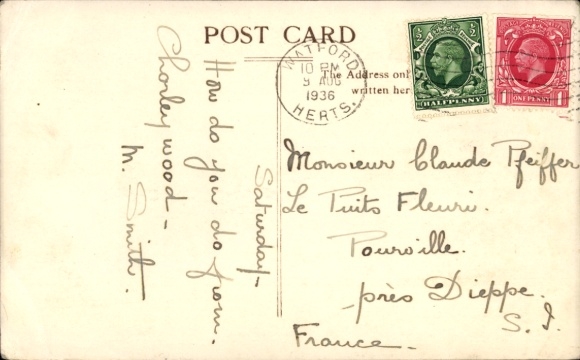 POST CARD
The Address onl
written her
WATFORD
10 PM
9 AUG
1936
HERTS.
½ ½
HALFPENNY
1 1
ONE PENNY
Saturday-
How do you do from.
Chorleywood-
M. Smith.
Monsieur Claude Pfeiffer
Le Puits Fleuri.
Pourville.
près Dieppe.
S. I.
France-